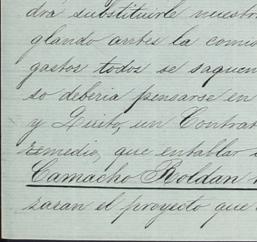 drá substituirle nuestro
glando antes la comis
gastos todos se saquen
so deberia pensarse en
y Quito, un Contrat
remedio, que entablar
Camacho Roldan
zaran el proyecto que